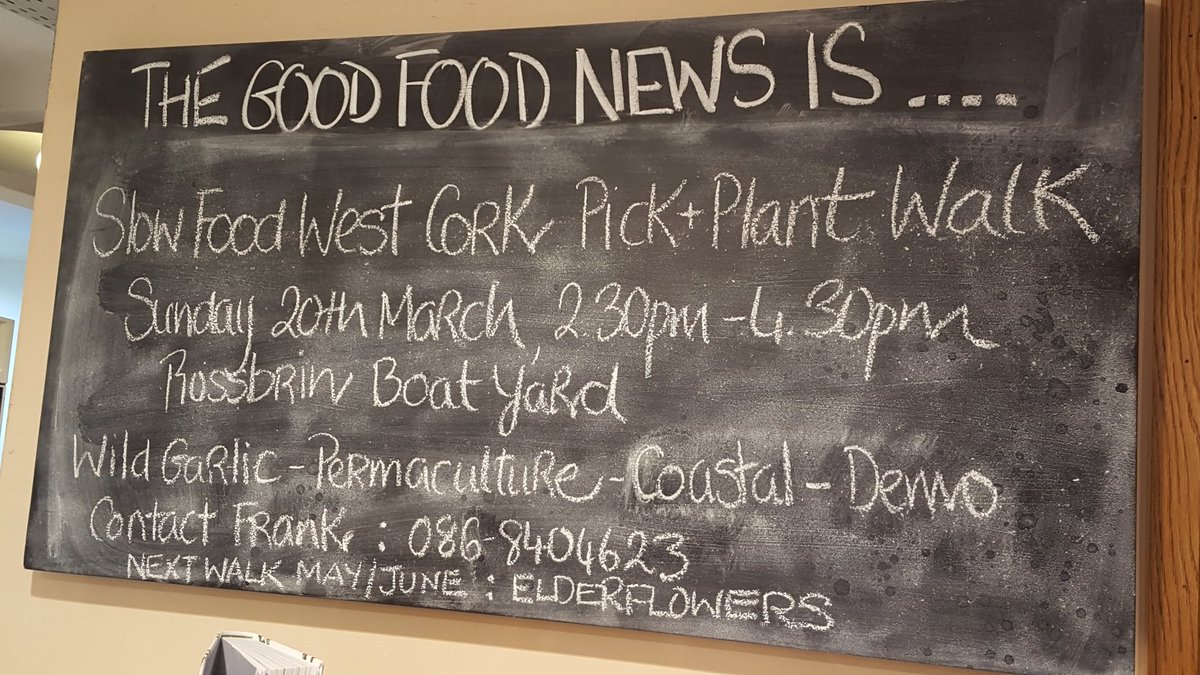 THE GOOD FOOD NEWS IS ....
Slow Food West Cork Pick + Plant Walk
Sunday 20th March, 2.30pm - 4.30pm
Rossbrin Boat Yard
Wild Garlic - Permaculture - Coastal - Demo
Contact Frank : 086-8404623
NEXT WALK MAY/JUNE : ELDERFLOWERS